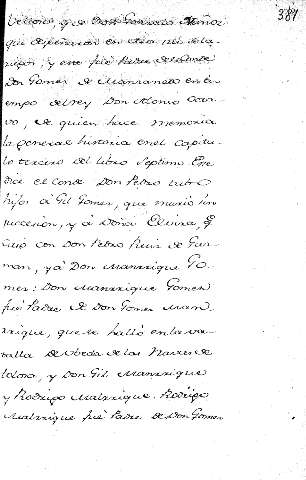 387
que
y este fué Padre
Don Gomez de Manzanedo en tie-
empo del rey Don Alonso Octa-
vo, de quien hace memoria
la general historia en el capitu-
lo tercero del libro septimo
dice el Conde Don Pedro tubo
hijos á Gil Gomez, que murió sin
succesion, y á Doña Elvira, q
casó con Don Pedro Ruiz de Guz-
man, y á Don Manrrique Go-
mez: Don Manrrique Gomez
fué Padre de Don Gomez Man-
rrique, que se halló en la ba-
talla de Ubeda de las Navas de
tolosa, y Don Gil Manrrique
y Rodrigo Malrrique. Rodrigo
Malrrique fué Padre de Don Gomez